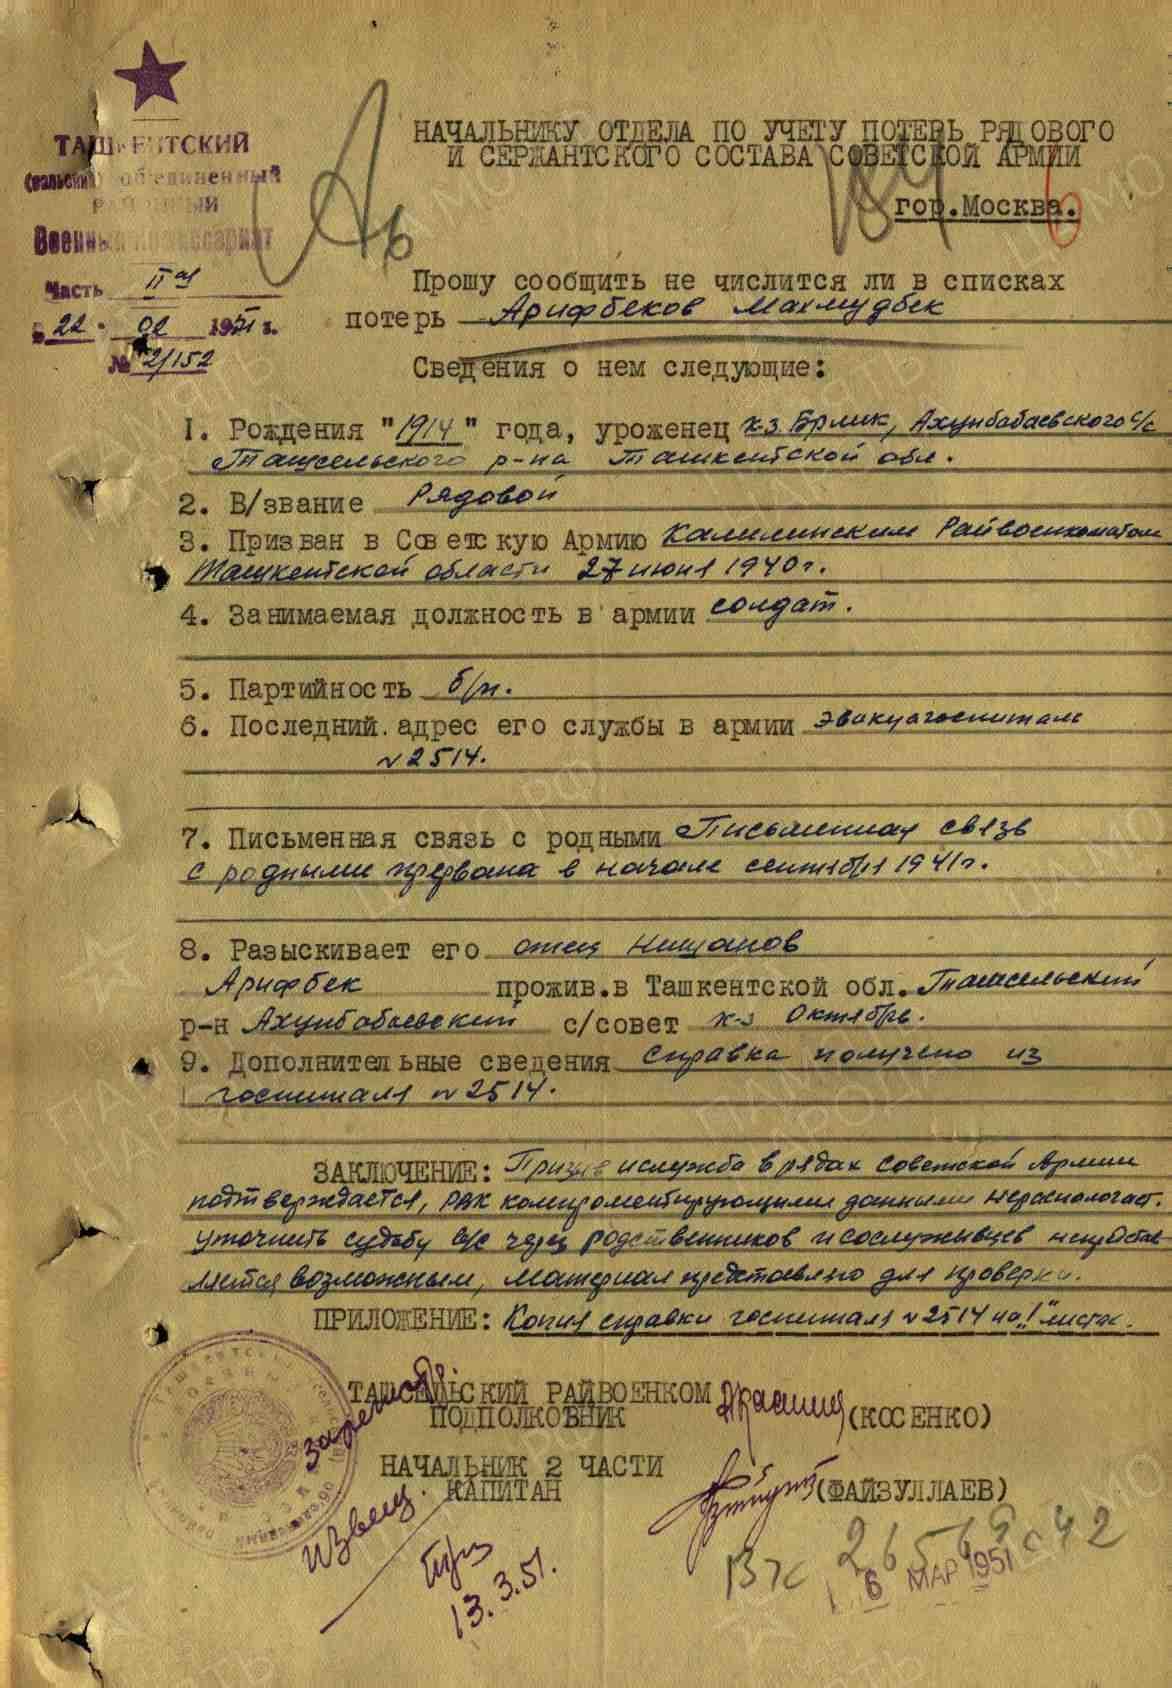 ТАШКЕНТСКИЙ
(сельский) объединенный
РАЙОННЫЙ
Военный Комиссариат
Часть IIая
"22" 02 1951 г.
№ 2/152
НАЧАЛЬНИКУ ОТДЕЛА ПО УЧЕТУ ПОТЕРЬ РЯДОВОГО
И СЕРЖАНТСКОГО СОСТАВА СОВЕТСКОЙ АРМИИ
гор.Москва.
Прошу сообщить не числится ли в списках
потерь Арифбеков Махмудбек
Сведения о нем следующие:
1. Рождения "1914" года, уроженец к-з. Брлик, Ахунбабаевского с/с
Ташсельского р-на Ташкентской обл.
2. В/звание Рядовой
3. Призван в Советскую Армию Калининским Райвоенкоматом
Ташкентской области 27 июня 1940 г.
4. Занимаемая должность в армии солдат.
5. Партийность б/п.
6. Последний адрес его службы в армии эвакуагоспиталь
№ 2514.
7. Письменная связь с родными Письменная связь
с родными прервана в начале сентября 1941 г.
8. Разыскивает его отец Нишанов
Арифбек прожив.в Ташкентской обл. Ташсельский
р-н Ахунбабаевский с/совет к-з Октябрь.
9. Дополнительные сведения справка получено из
госпиталя № 2514.
ЗАКЛЮЧЕНИЕ: Призыв и служба в рядах Советской Армии
подтверждается, РВК компроментирующими данными нерасполагает.
уточнить судьбу в/с через родственников и сослуживцев непредстав-
ляется возможным, материал представлено для проверки.
ПРИЛОЖЕНИЕ: Копия справки госпиталя № 2514 на "1" листах.
ТАШСЕЛЬСКИЙ РАЙВОЕНКОМ
ПОДПОЛКОВНИК (КОСЕНКО)
НАЧАЛЬНИК 2 ЧАСТИ
КАПИТАН (ФАЙЗУЛЛАЕВ)
извещ.
13.3.51.
6 МАР 1951